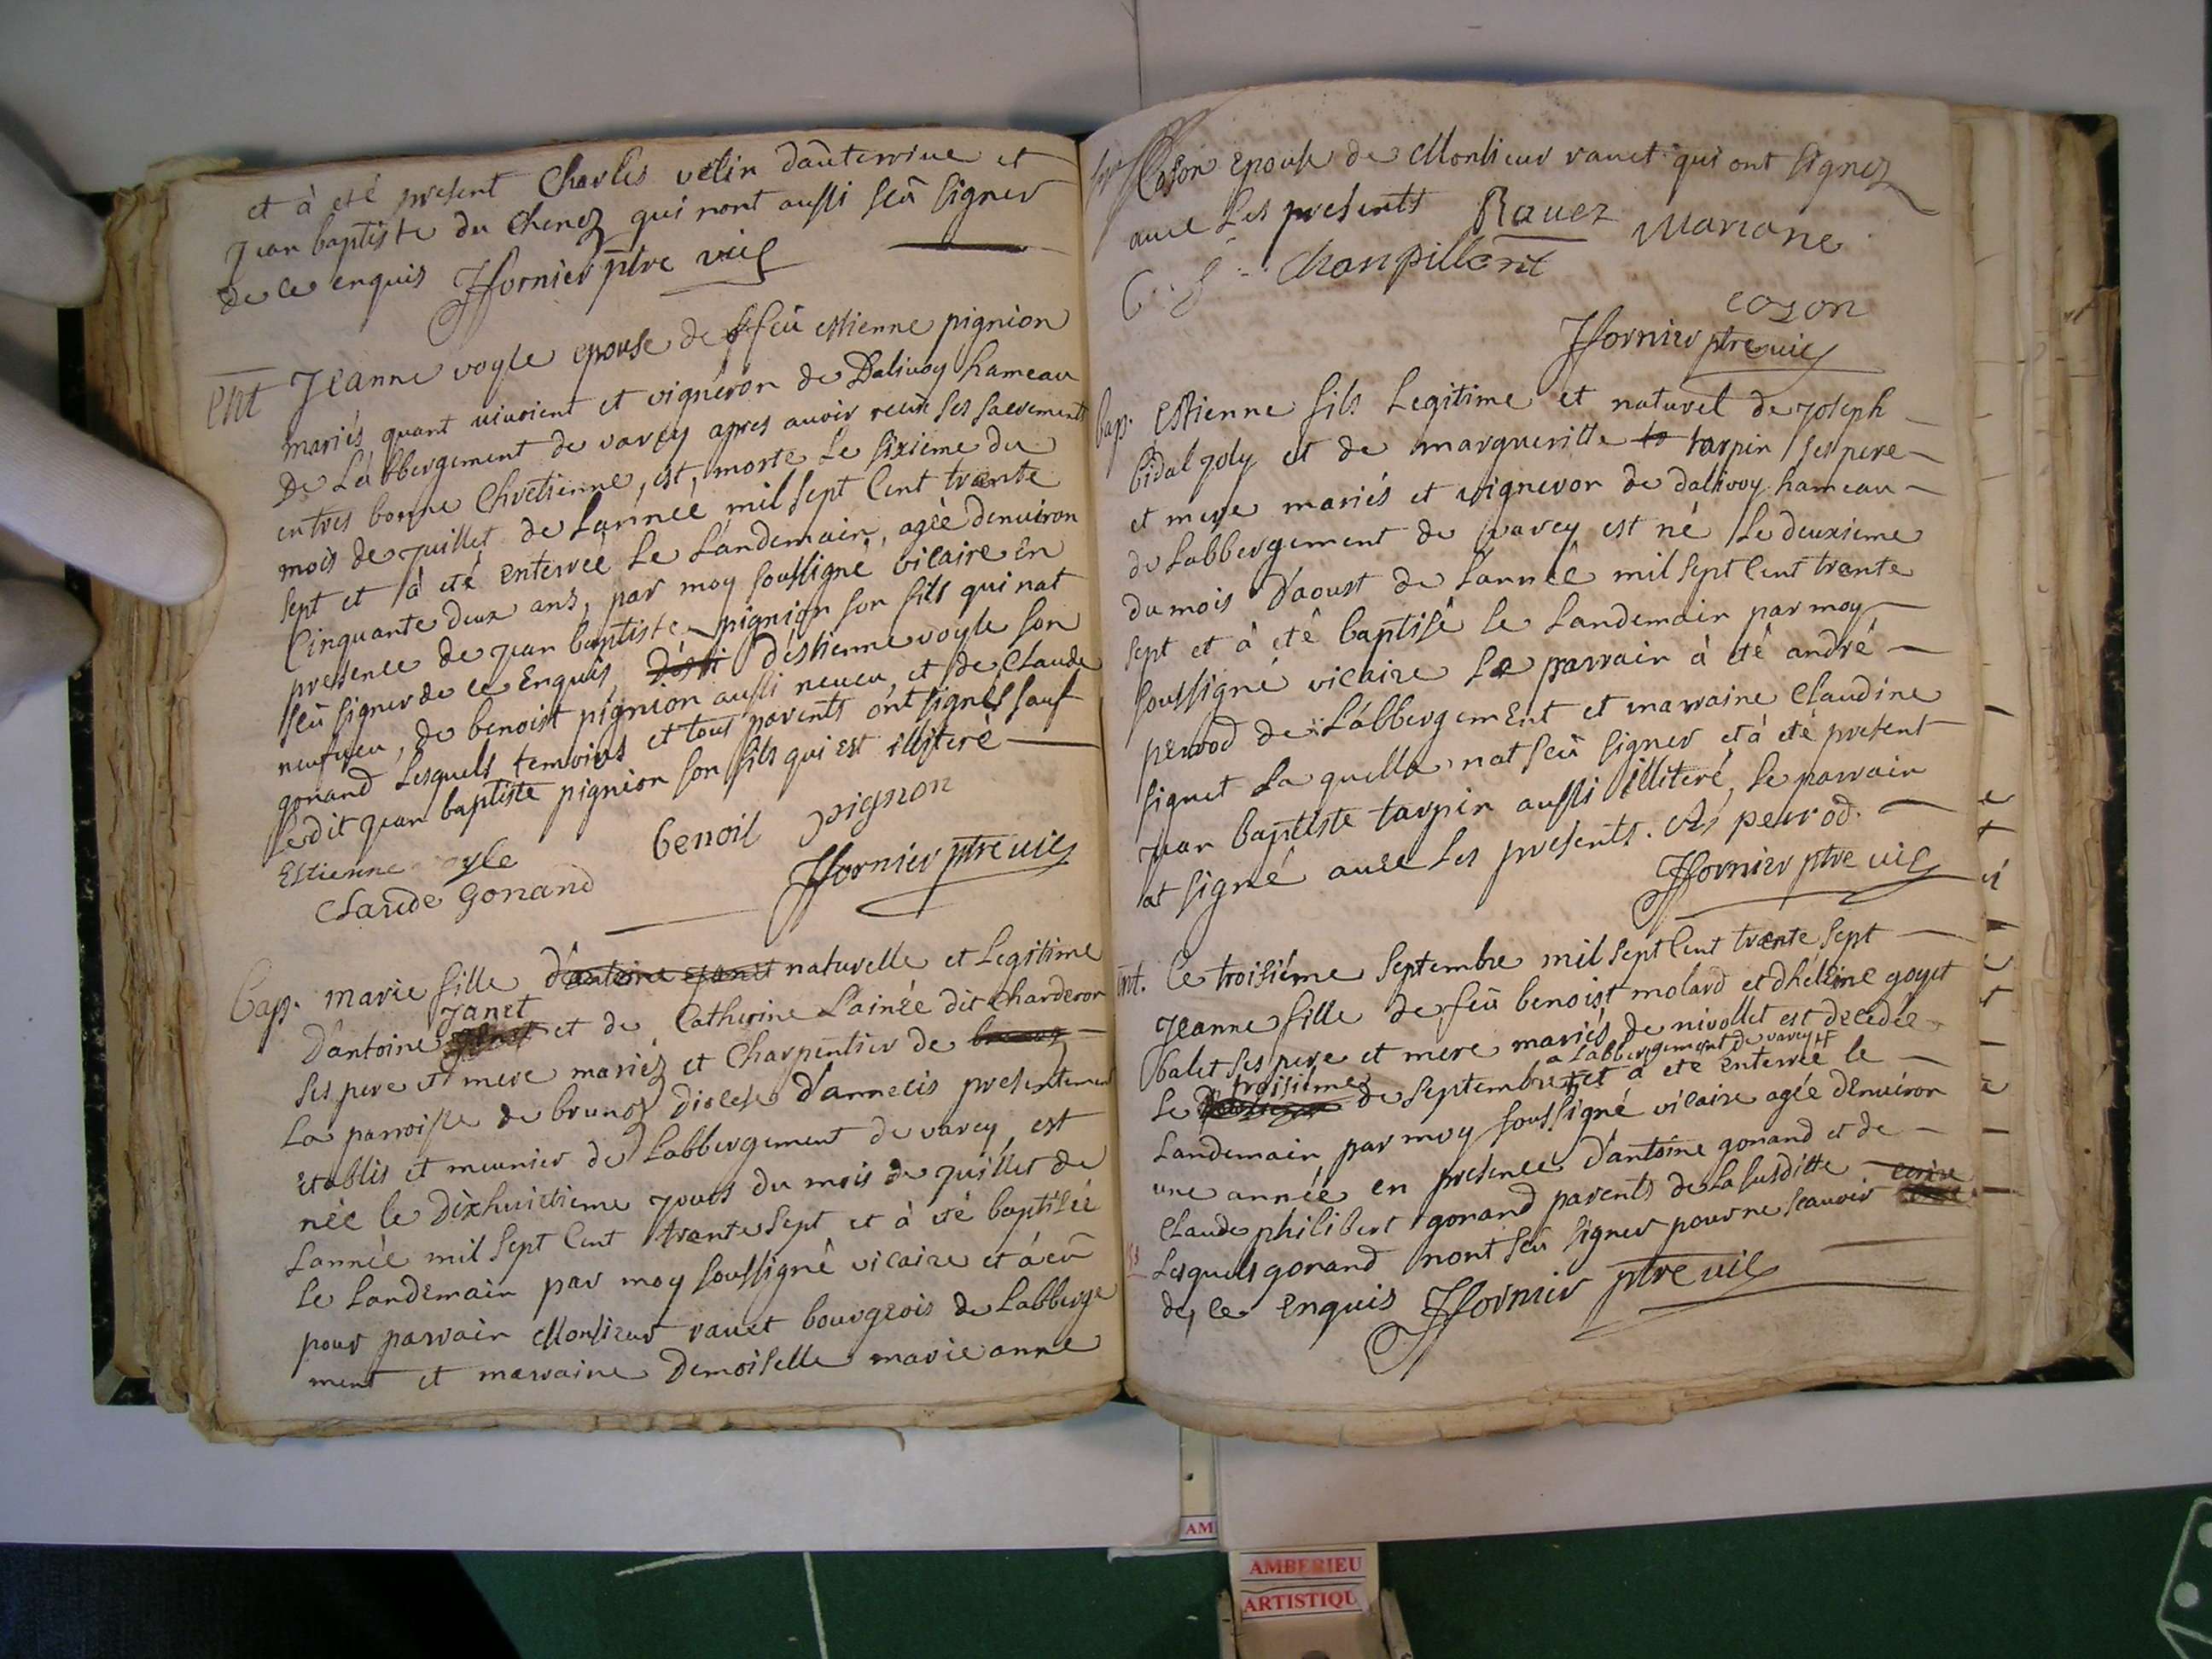 et à eté present Charles velin dauterrive et
jean baptiste du Chenez qui nont aussi seu signer
de ce enquis ffornier ptre vic
ent Jeanne voyle epouse de ffeu estienne pignion
mariés quant vivoient et vigneron de Dalivoy hameau
De Labbergement de varey apres auoir recüs ses sacrements
entres bonne Chretienne, est, morte Le sixieme du
mois de juillet de Lannéé mil sept Cent trante
sept et à eté enterréé Le Landemain, agéè denuiron
Cinquante deux ans, par moy soussigné vicaire En
presence de jean baptiste pignion son fils qui nat
seu signer de ce Enquis, d'estienne voyle son
neufveu, de benoist pignion aussi neveu, et de Claude
gonand Lesquels temoins et tous parents ont signés sauf
Ledit jean baptiste pignion son fils qui est illiteré
Estienne voyle benoit pignon
Claude Gonand ffornier ptre vic
Bap. marie fille d'antoine naturelle et Legitime
Janet
D'antoine et de Catherine Lainée dit Charderon
ses pere et mere mariez et Charpentier de
La parroisse de brunoz diocese d'annecis presentement
etablis et meunier de Labbergement de varey, est
néé le dixhuictieme jours du mois de juillet de
Lannéé mil sept Cent trante sept et à eté baptiséé
Le Landemain par moy soussigné vicaire et à eu
pour parrain Monsieur ravet bourgeois de Labberge
ment et marraine Demoiselle marie anne
Coson epouse de Monsieur ravet qui ont signez
avec Les presents Rauez Mariane
Chanpillont
cozon
ffornier ptre vic
bap. Estienne fils Legitime et naturel de joseph
bidal joly et de margueritte to tarpin ses pere
et mere mariés et vigneron de dalivoy hameau
de Labbergement de varey est né Le deuxieme
du mois d'aoust de Lannéé mil sept Cent trante
sept et à eté baptisé le Landemain par moy
soussigné vicaire Le parrain à eté andré
perrod de Labbergement et marraine Claudine
signet La quelle nat seu signer et à eté present
jean baptiste tarpin aussi illiteré, le parrain
at signé avec Les presents. A, perrod.
ffornier ptre vic
ent. Ce troisiéme septembre mil sept Cent trante sept
Jeanne fille de feu benoist molard et dhéleine goyet
balet ses pere et mere mariés de nivollet est decedéé
a Labbergement de varey
troisiéme
Le de septembre et à eté enterréé le
Landemain par moy soussigné vicaire agéé denuiron
une annéé en presence d'antoine gonand et de
Claude philibert gonand parents de La susditte
ecrire
Lesquels gonand nont seu signer pour ne scauoir
de ce enquis ffornier ptre vic
AM
AMBERIEU
ARTISTIQU